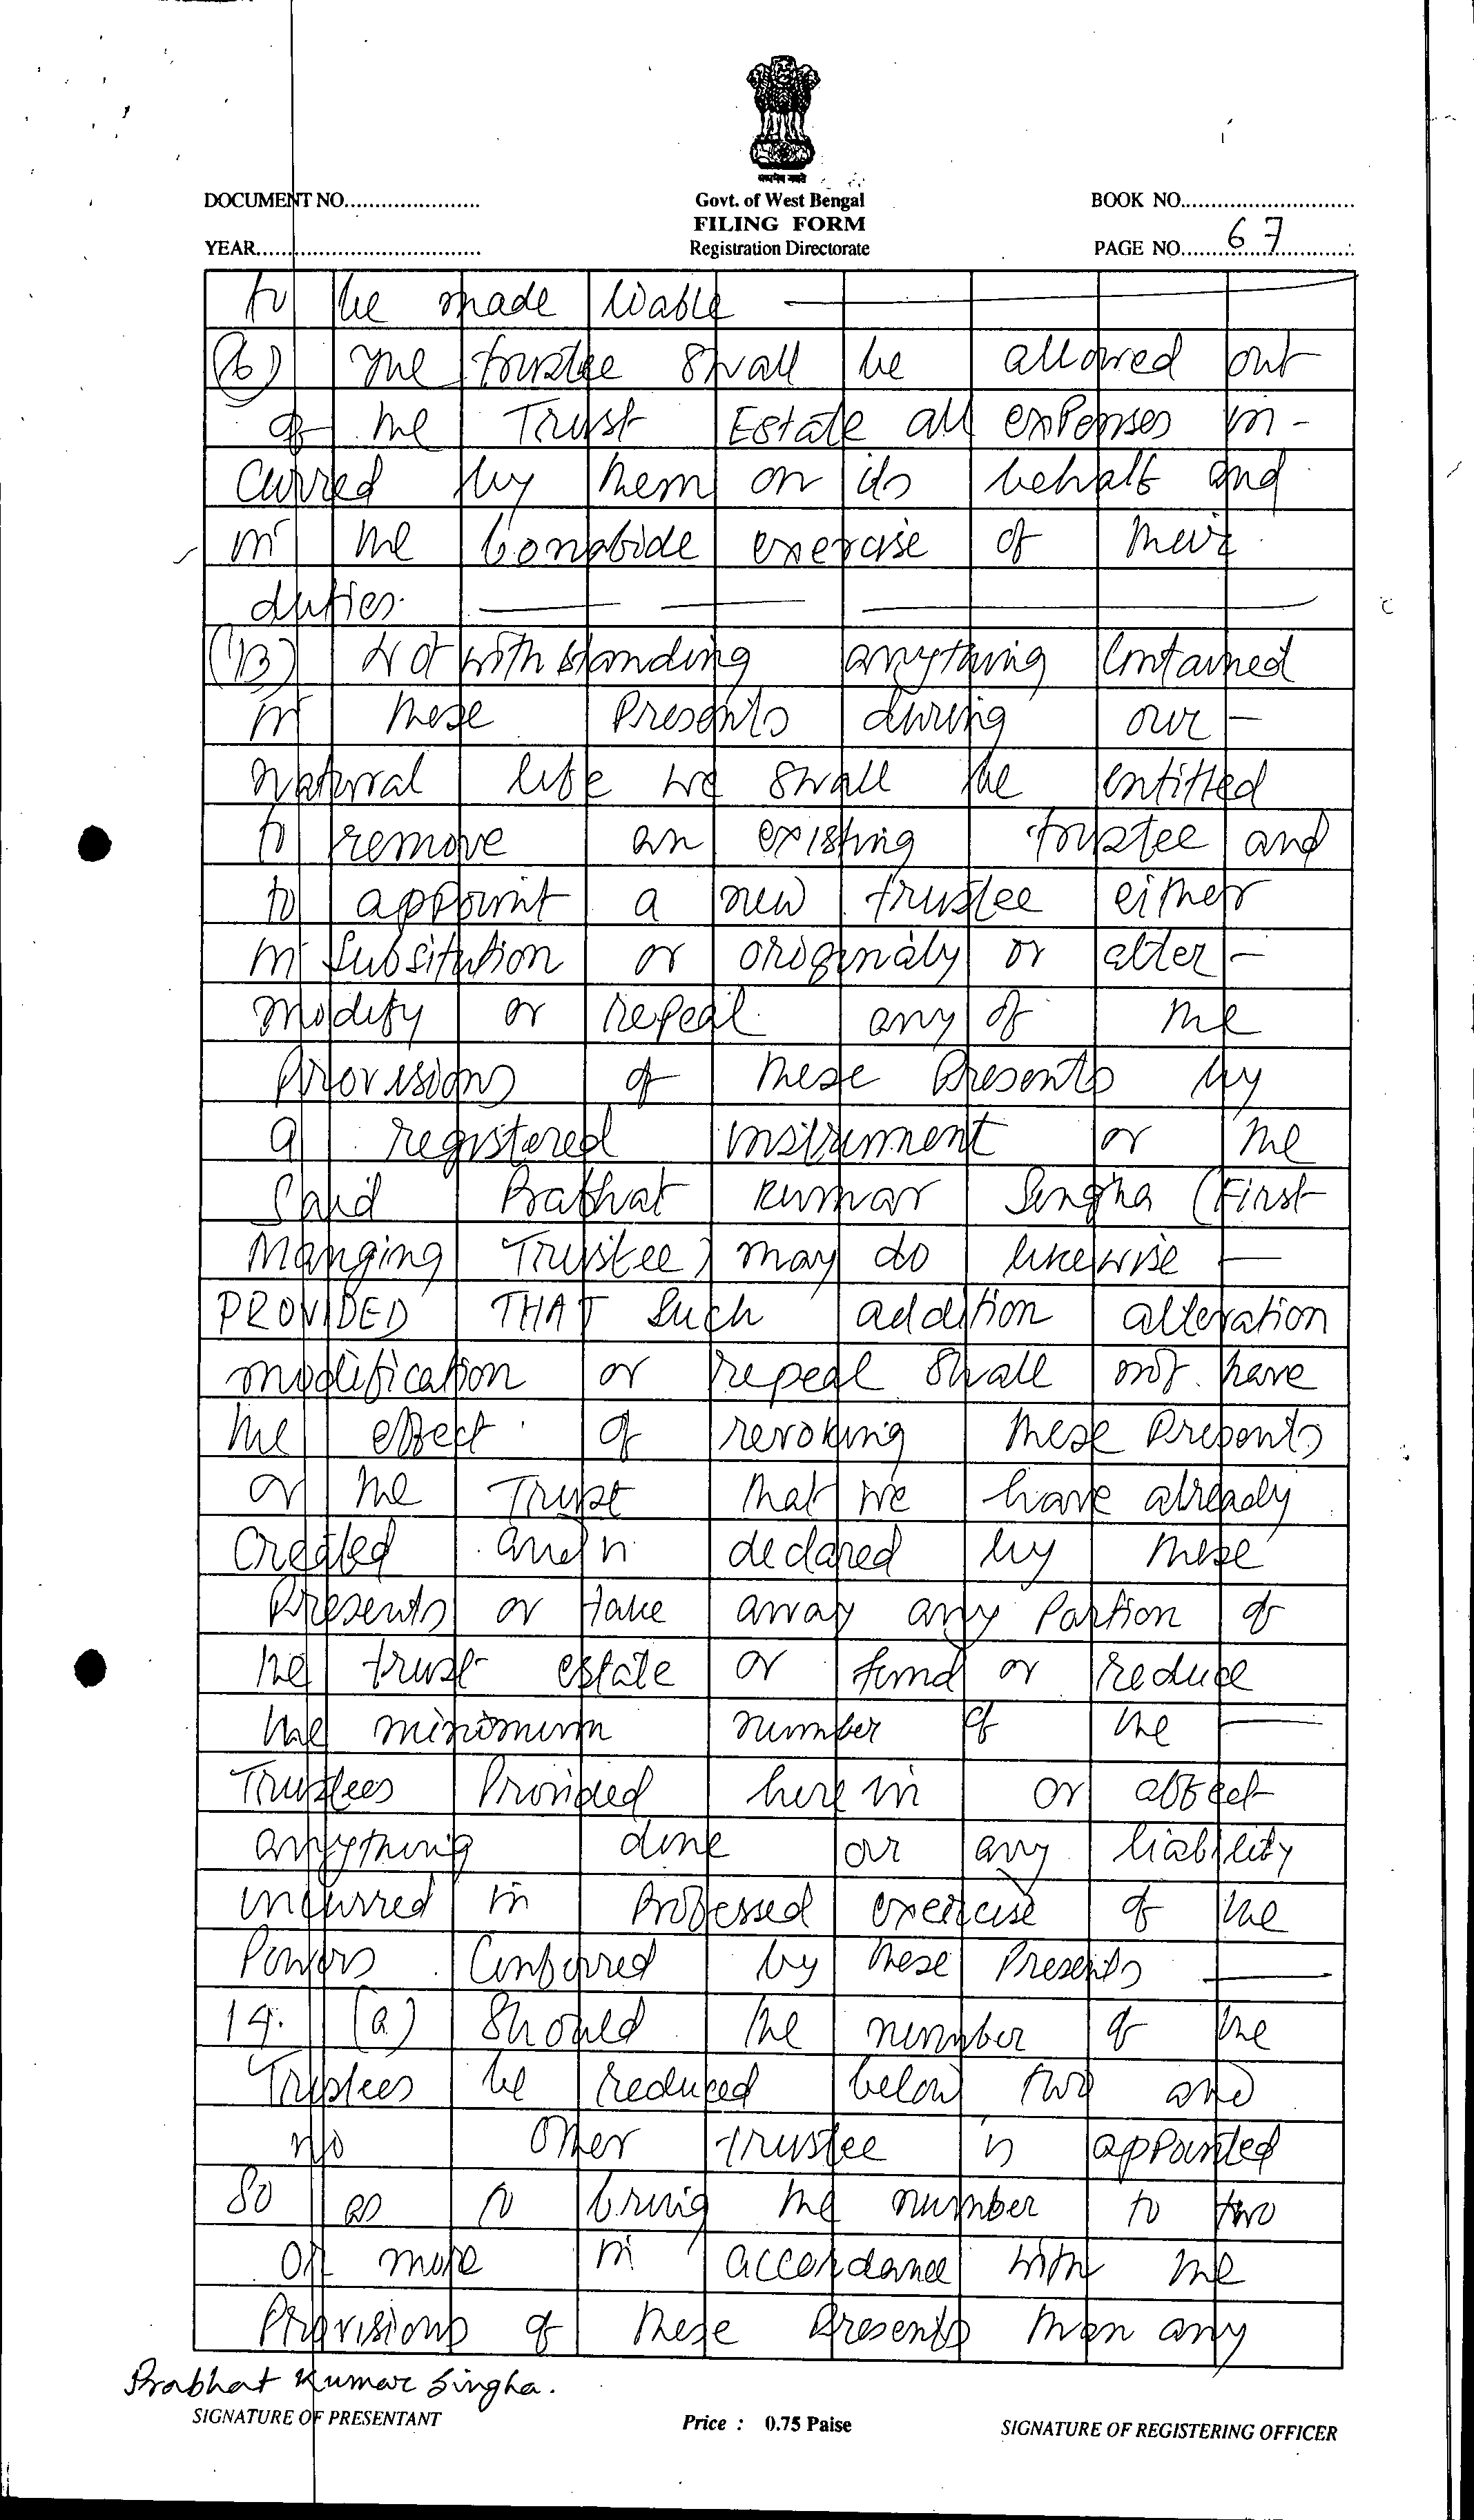 सत्यमेव जयते
DOCUMENT NO.......................
Govt. of West Bengal
BOOK NO.............................
FILING FORM
YEAR......................................
Registration Directorate
PAGE NO. 67
to be made liable
(b) The trustee shall be allowed out
of the Trust Estate all expenses in-
curred by them on its behalf and
in the bonafide exercise of their
duties.
(13) Notwithstanding anything contained
in these Presents during our -
natural life we shall be entitled
to remove an existing trustee and
to appoint a new trustee either
in Subsitution or originaly or alter -
modify or repeal any of the
Provisions of these Presents by
a registered instrument or the
Said Prabhat Kumar Singha (First
Manging Trustee) may do likewise
PROVIDED THAT Such addition alteration
modification or repeal shall not have
the effect of revoking these Presents
or the Trust that we have already
Created and declared by these
Presents or take away any Portion of
the trust estate or fund or reduce
the minimum number of the
Trustees Provided herein or affect
anything done or any liability
incurred in Professed exercise of the
Powers Conferred by these Presents
14. (a) Should the number of the
Trustees be reduced below two and
no other trustee is appointed
So as to bring the number to two
or more in accordance with the
Provisions of these Presents then any
Prabhat Kumar Singha.
SIGNATURE OF PRESENTANT
Price : 0.75 Paise
SIGNATURE OF REGISTERING OFFICER